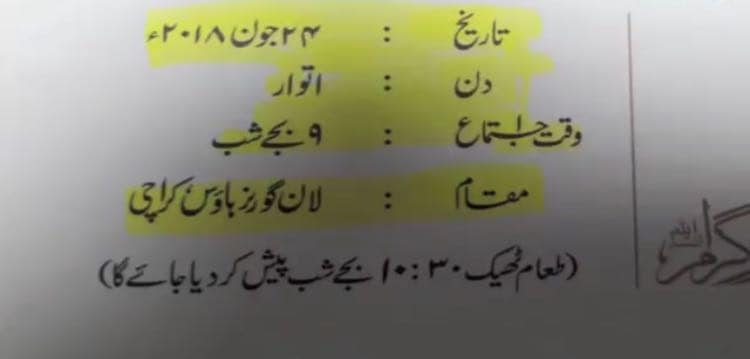 تاریخ : ۲۴ جون ۲۰۱۸ء
دن : اتوار
وقت اجتماع : ۹ بجے شب
مقام : لان گورنر ہاؤس کراچی
(طعام ٹھیک ۱۰:۳۰ بجے شب پیش کر دیا جائے گا)